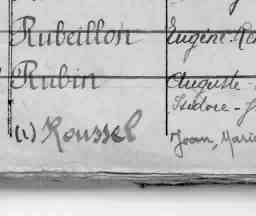 Rubeillon Eugène-
Rubin Auguste-
Isidore-
(1) Roussel Jean, Marie